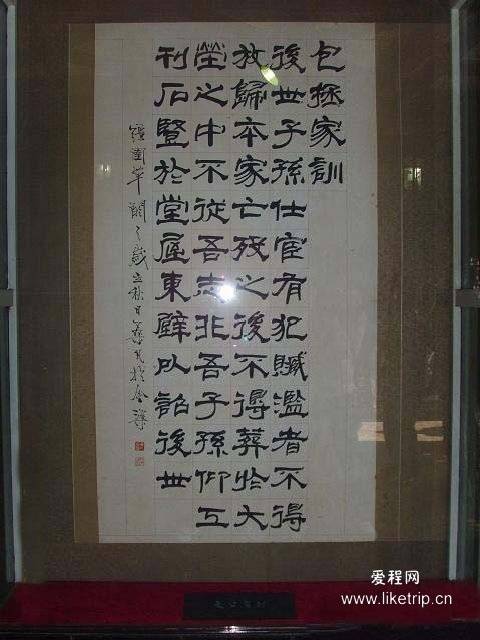 包拯家訓
後世子孫仕宦有犯贓濫者不得
放歸本家亡歿之後不得葬於大
塋之中不從吾志非吾子孫仰工
刊石豎於堂屋東壁以詔後世
強圉單閼之歲立秋日
爱程网
www.liketrip.cn